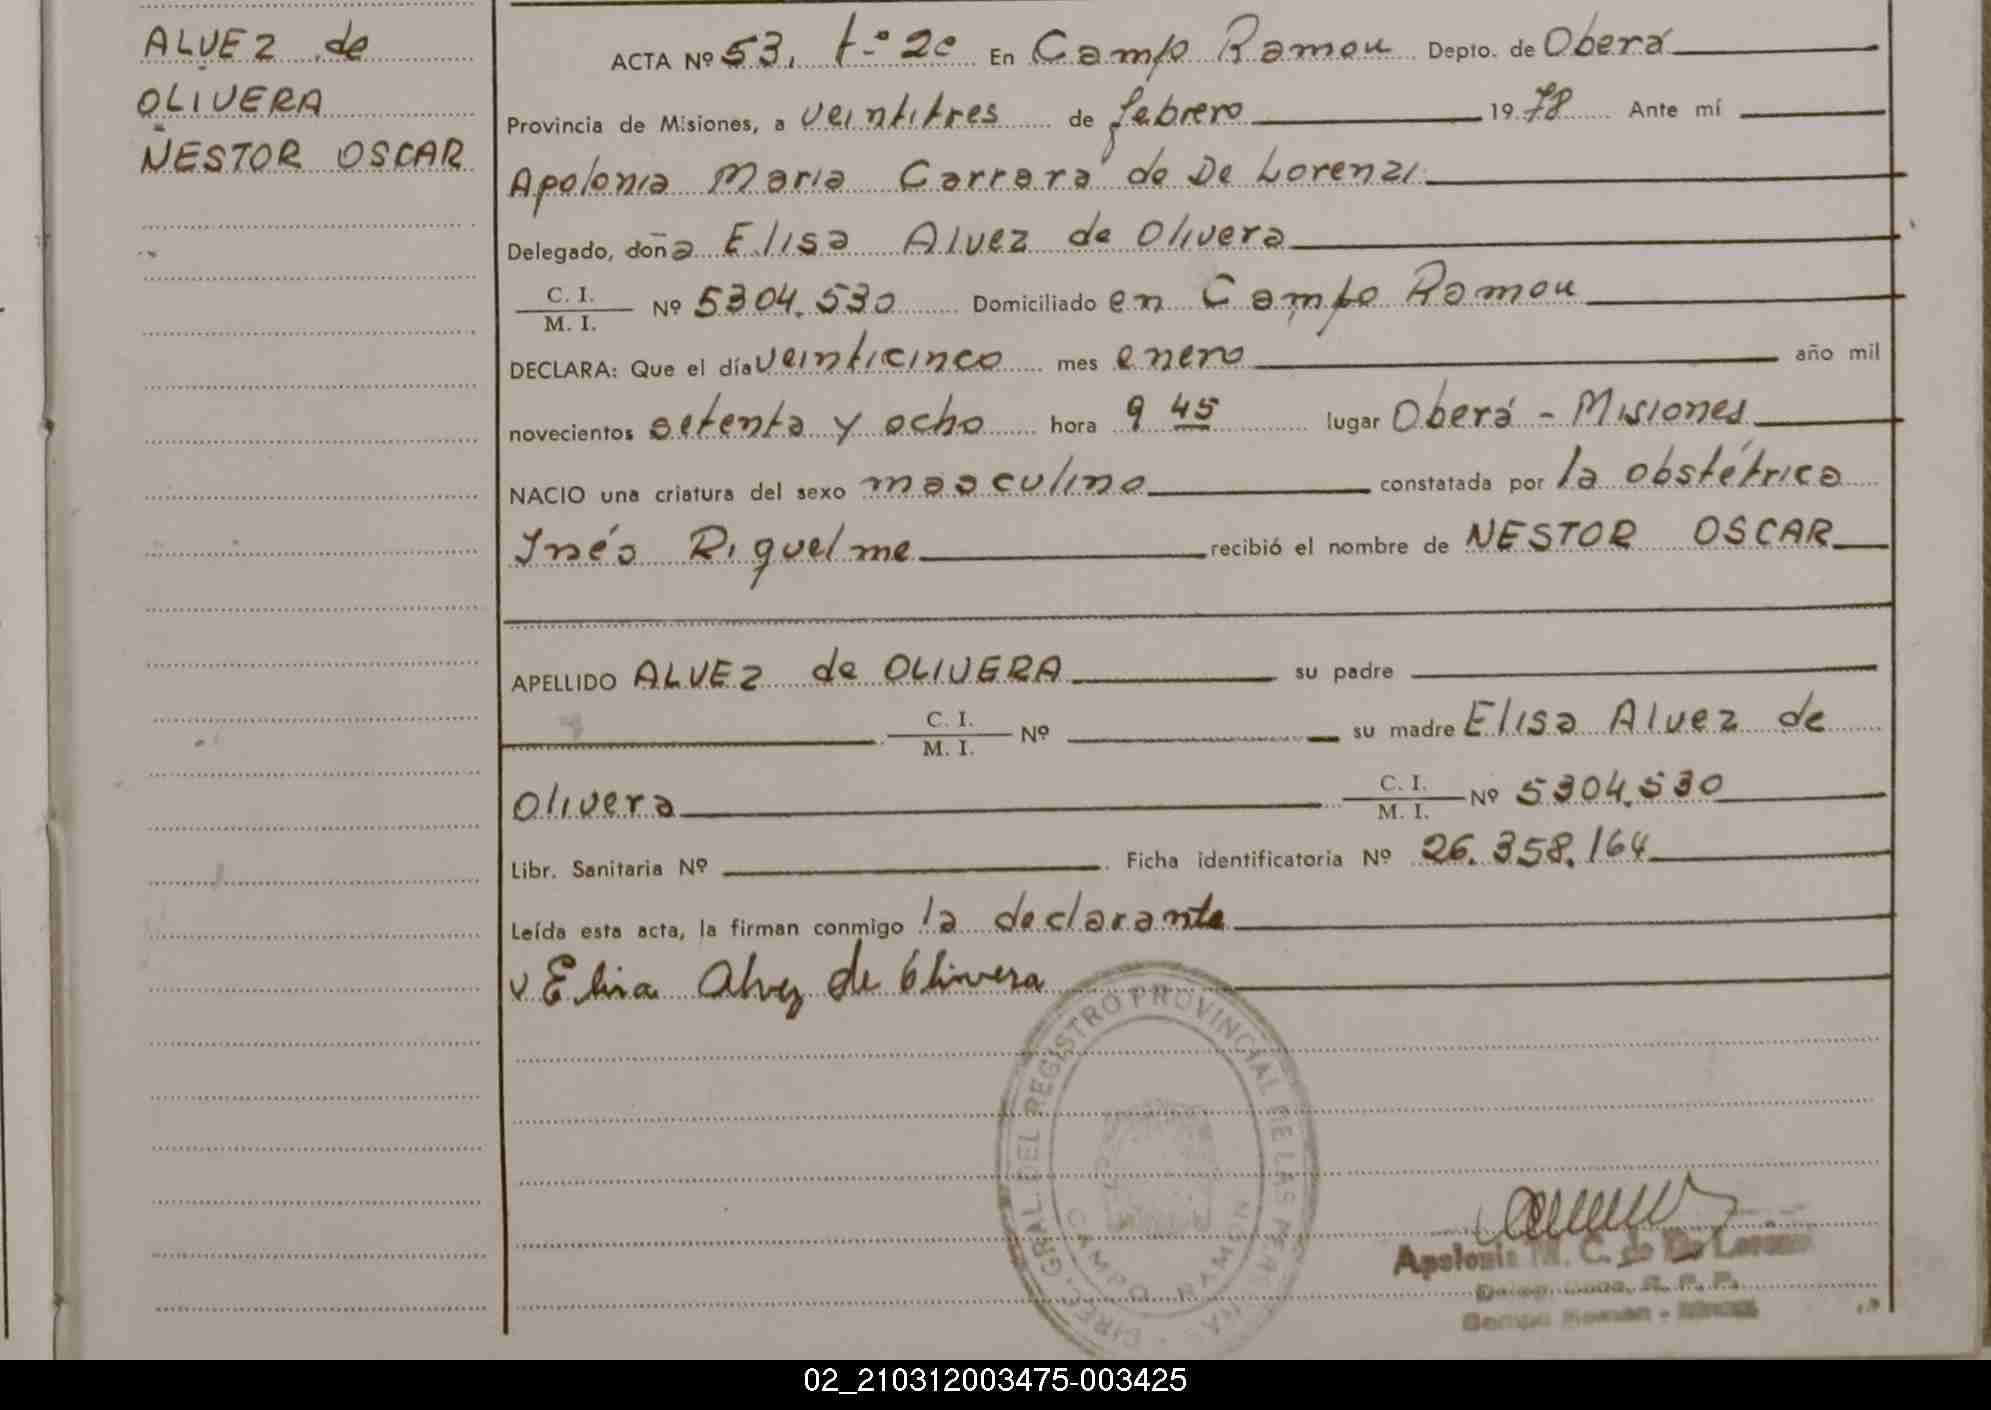 ALVEZ de
OLIVERA
NESTOR OSCAR
ACTA Nº 53. tº 2º En Campo Ramon Depto. de Oberá
Provincia de Misiones, a veintitres de febrero 1978 Ante mí
Apolonia Maria Carrara de De Lorenzi
Delegado, doña Elisa Alvez de Olivera
C. I.
M. I. Nº 5304.530 Domiciliado en Campo Ramon
DECLARA: Que el día veinticinco mes enero año mil
novecientos setenta y ocho hora 9 45 lugar Oberá - Misiones
NACIO una criatura del sexo masculino constatada por la obstétrica
Inés Riquelme recibió el nombre de NESTOR OSCAR
APELLIDO ALVEZ de OLIVERA su padre
C. I.
M. I. Nº su madre Elisa Alvez de
Olivera C. I.
M. I. Nº 5304.530
Libr. Sanitaria Nº Ficha identificatoria Nº 26.358.164
Leída esta acta, la firman conmigo la declarante
Elisa Alvez de Olivera
DIREC. GRAL. DEL REGISTRO PROVINCIAL DE LAS PERSONAS
CAMPO RAMON
Apolonia M. C. de De Lorenzi
R. P. P.
Campo Ramon -
02_210312003475-003425